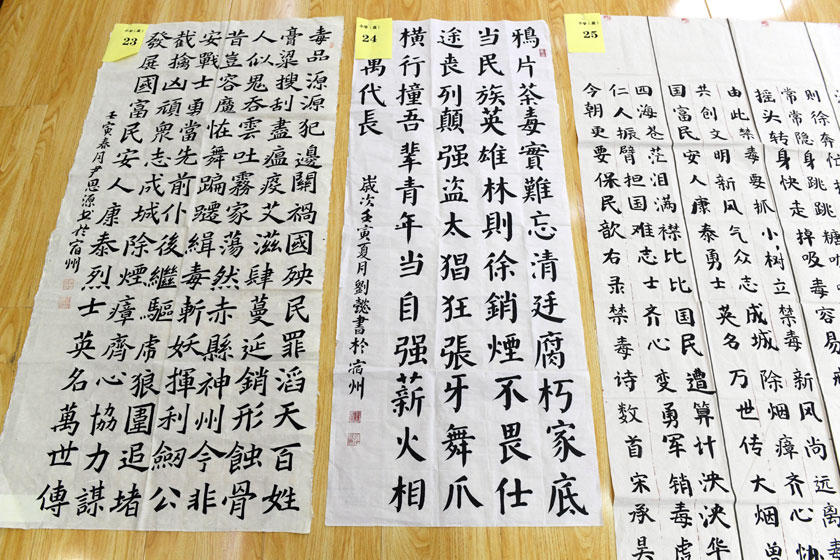 23
毒品源源犯邊關禍國殃民罪滔天百姓
膏粱搜刮盡瘟疫艾滋肆蔓延銷形蝕骨
人似鬼吞雲吐霧家蕩然赤縣神州今非
昔豈容魔怪舞蹁躚緝毒斬妖揮利劍公
安戰士勇當先前仆後繼驅虎狼圍追堵
截擒凶頑衆志成城除煙瘴齊心協力謀
發展國富民安人康泰烈士英名萬世傳
壬寅春月尹思源书於宿州
24
鴉片荼毒實難忘清廷腐朽家底
当民族英雄林則徐銷煙不畏仕
途丧列顛强盗太猖狂張牙舞爪
橫行撞吾輩青年当自强薪火相
萬代長
歲次壬寅夏月劉懿書於宿州
25
则徐奔
常常隐身跳跳糖
摇头转身快走掉吸毒容易
由此禁毒要抓小树立禁毒新风尚远离
共创文明新风气众志成城除烟瘴齐心
国富民安人康泰勇士英名万世传大烟
四海苍茫泪满襟比比国民遭算计泱泱华
仁人振臂担国难志士齐心变勇军销毒虎
今朝更要保民歆右录禁毒诗数首宋承吴